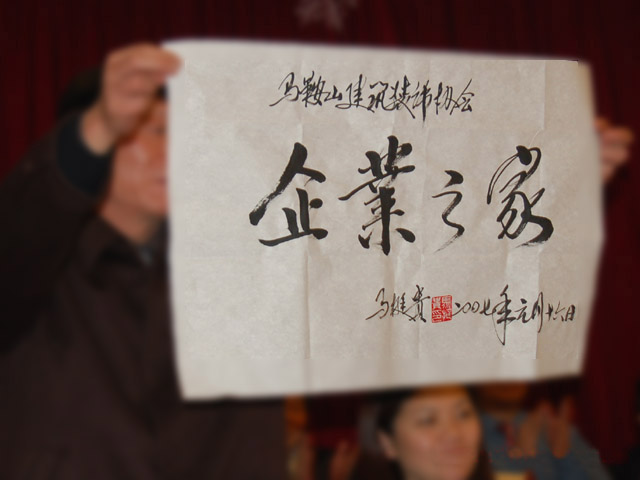 马鞍山建筑装饰协会
企業之家
马挺贵 二〇〇七年元月十六日